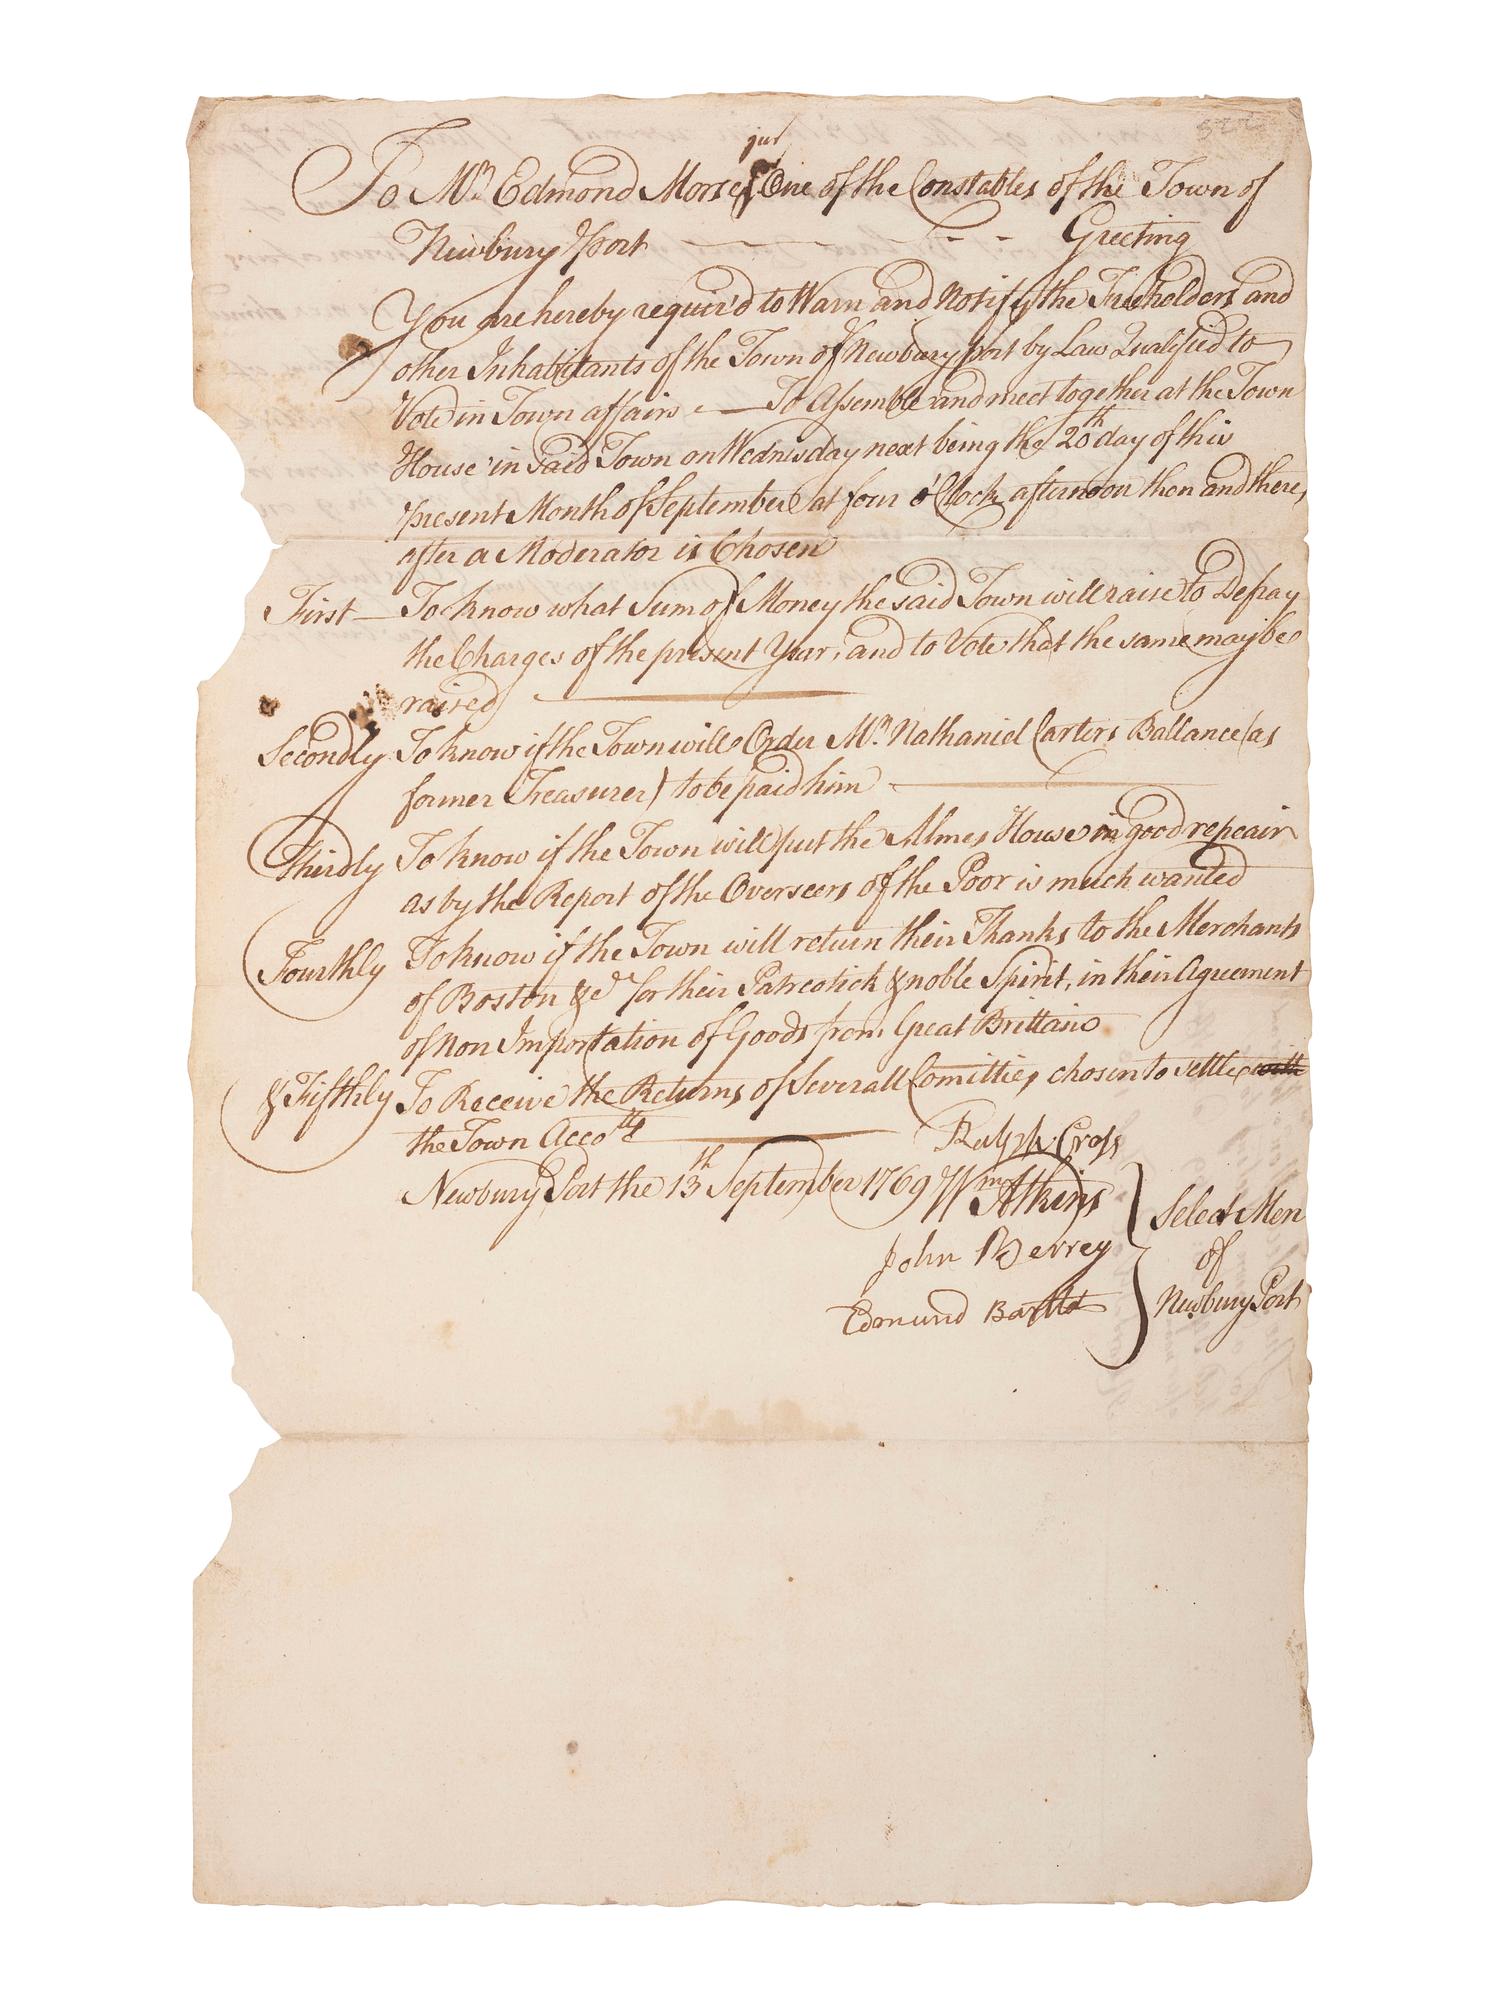 jur
To Mr. Edmond Morse One of the Constables of the Town of
Newbury port Greeting
You are hereby requir'd to Warn and Notify the Freeholders and
other Inhabitants of the Town of Newbury port by Law Qualified to
Vote in Town affairs — To Assemble and meet together at the Town
House in said Town on Wednesday next being the 20th day of this
present Month of September at four o'Clock afternoon then and there,
after a Moderator is Chosen
First — To know what Sum of Money the said Town will raise to Defray
the Charges of the present Year, and to Vote that the same may be
raised
Secondly To know if the Town will Order Mr. Nathaniel Carters Ballance (as
former Treasurer) to be paid him
Thirdly To know if the Town will put the Almes House in good repair
as by the Report of the Overseers of the Poor is much wanted
Fourthly To know if the Town will return their Thanks to the Merchants
of Boston &c for their Patreotick & noble Spirit, in their Agreement
of Non Importation of Goods from Great Brittain
& Fifthly To Receive the Returns of Severall Comitties chosen to settle with
the Town Accotts
Ralph Cross
Newbury Port the 13th September 1769 Wm Atkins
John Berrey
Edmund Bartlet
Select Men
of
Newbury Port